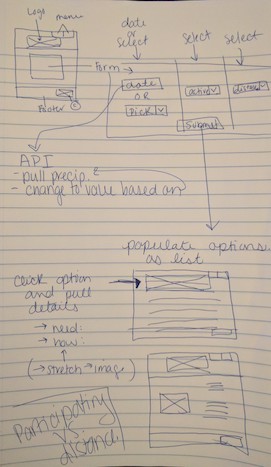 Logo
menu
Footer
©
date
or
select
select
select
Form
date
OR
Pick
Submit
API
- pull precip.
- change to value based on
populate options
as list
click option
and pull
details
→ need:
→ how:
(→ stretch → image)
Participating